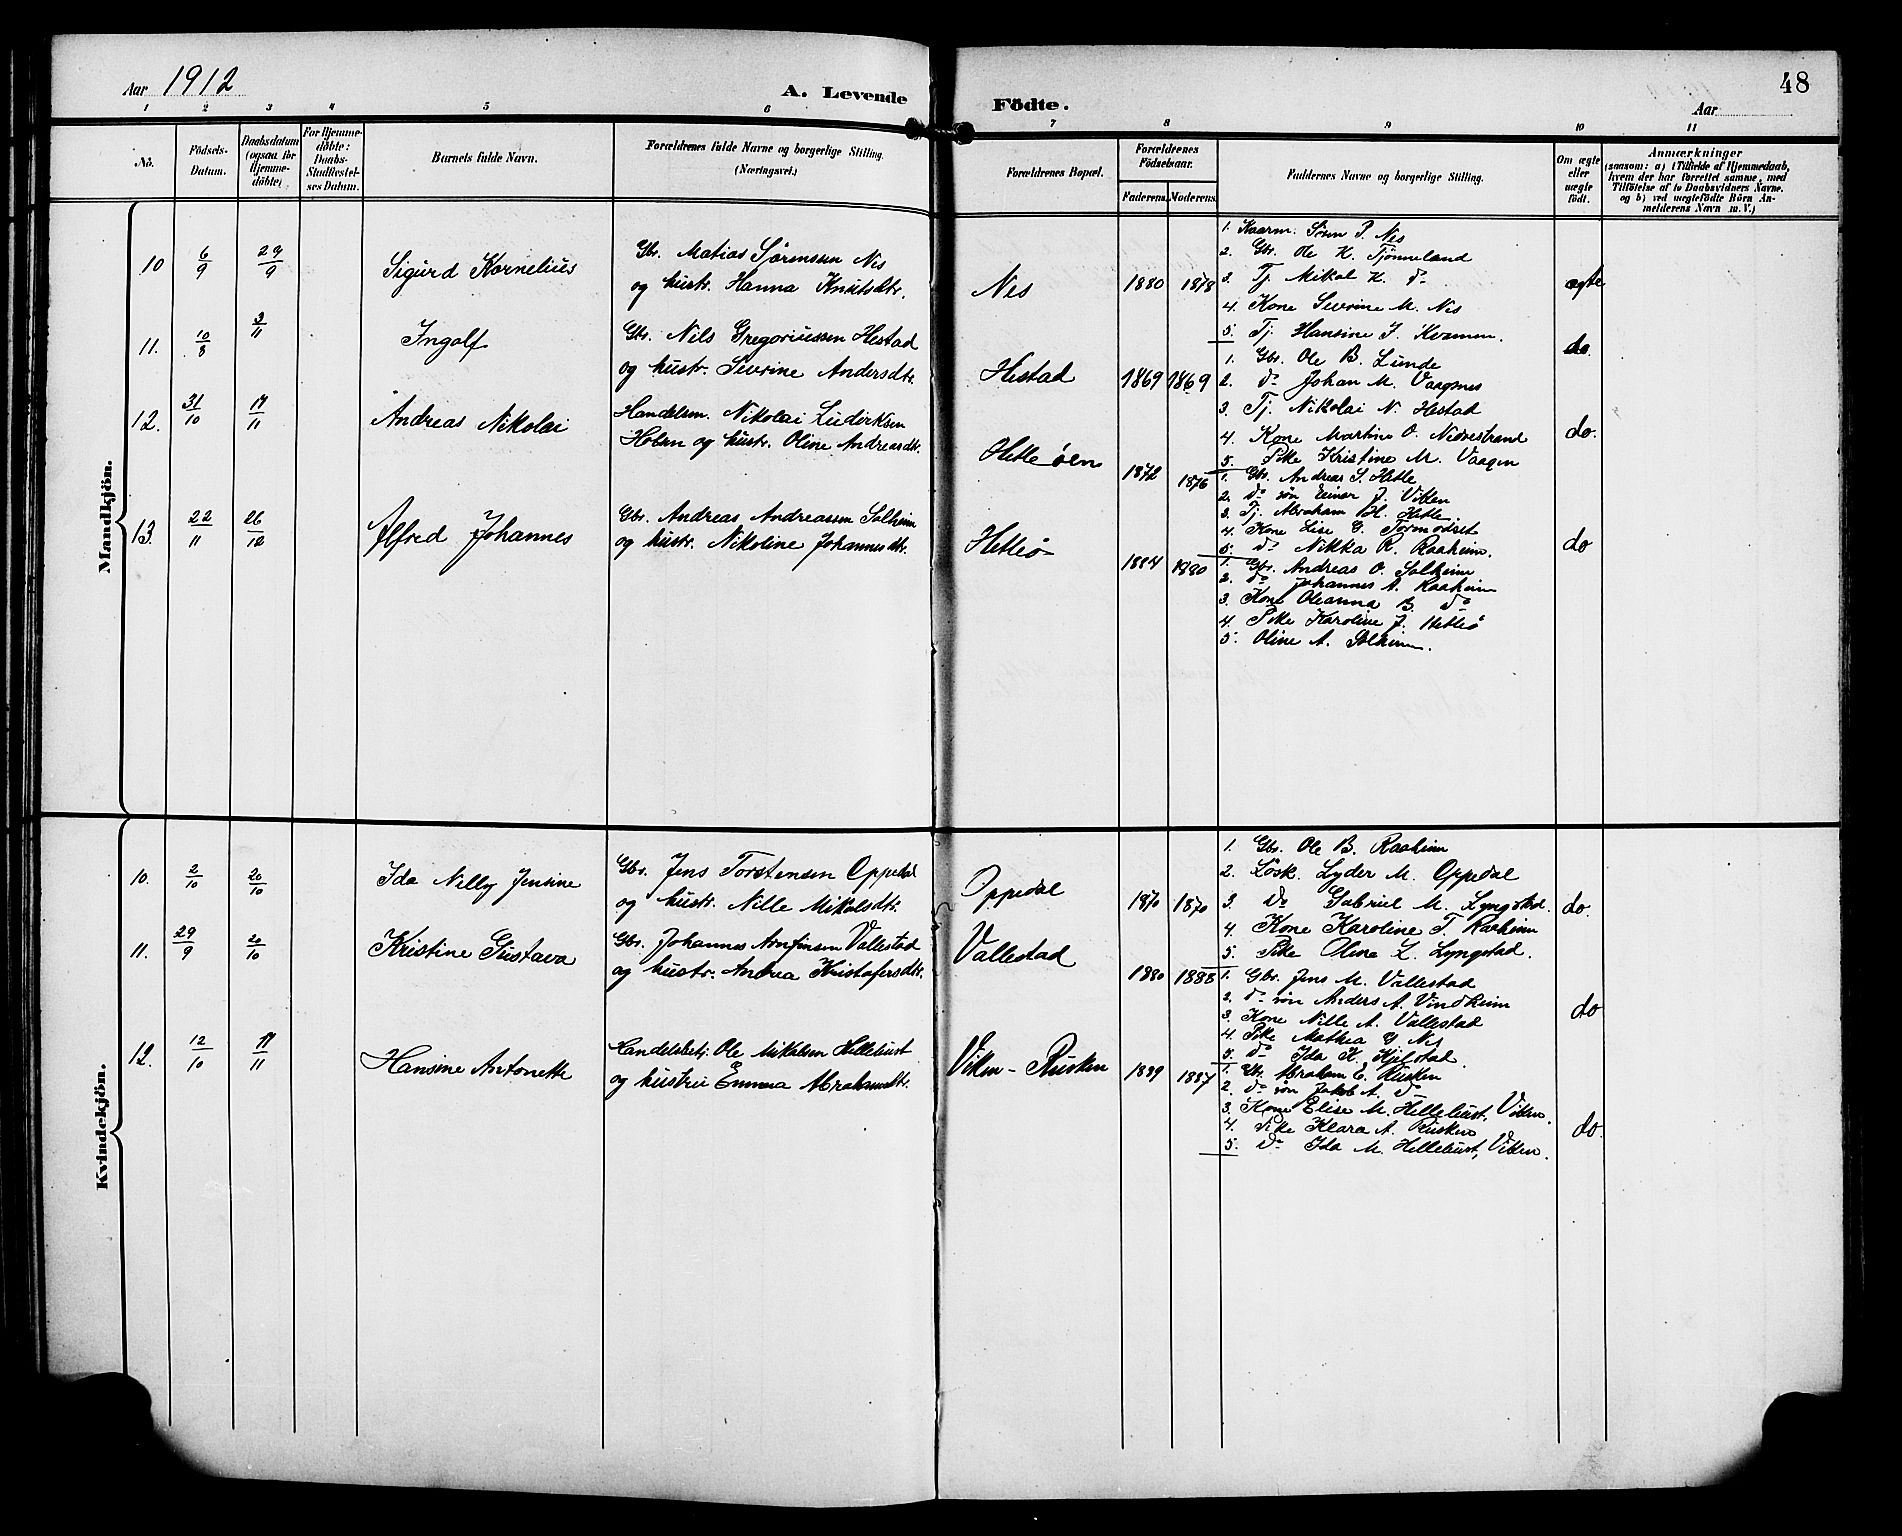 Aar 1912
A. Levende
Födte.
Aar
48
1 2 3 4 5 6 7 8 9 10 11
No.
Födsels-Datum.
Daabsdatum (ogsaa for Hjemme-döbte)
For Hjemme-döbte: Daabs-Stadfæstel-ses Datum.
Barnets fulde Navn.
Forældrenes fulde Navne og borgerlige Stilling. (Næringsvei.)
Forældrenes Bopæl.
Forældrenes Födselsaar.
Faderens. Moderens.
Faddernes Navne og borgerlige Stilling.
Om ægte eller uægte födt.
Anmærkninger
(saasom: a) i Tilfælde af Hjemmedaab,
hvem der har forrettet samme, med
Tilföielse af to Daabsvidners Navne.
og b) ved uægtefödte Börn An-
melderens Navn m. V.)
Mandkjön.
10 6/9 29/9 Sigurd Kornelius
Gbr. Matias Sørenssen Nes
og hustr. Hanna Knutsdtr.
Nes 1880 1878
1. Kaarm. Søren P. Nes
2. Gbr. Ole K. Tjønneland
3. Tj. Mikal K. do
4. Kone Severine M. Nes
5. Tj. Hansine J. Kvamen.
ægte
11. 10/8 3/11 Ingolf
Gbr. Nils Gregoriussen Hestad
og hustr. Severine Andersdtr.
Hestad 1869 1869
1. Gbr. Ole B. Lunde
2. do Johan M. Vaagnes
3. Tj. Nikolai N. Hestad
4. Kone Martine O. Nedrestrand
5. Pike Kristine M. Vaagen
do.
12. 31/10 17/11 Andreas Nikolai
Handelsm. Nikolai Luderksen
og hustr. Oline Andreasdtr.
Hetleøen 1872 1876
1. Gbr. Andreas S. Hetle
2. do søn Einar J. Viken
3. Tj. Abraham H. Hetle
4. Kone Lise G. Tormodset
5. do Nikka R. Raaheim.
do.
13. 22/11 26/12 Alfred Johannes
Gbr. Andreas Andreassen Solheim
og hustr. Nikoline Johannesdtr.
Hetleø 1884 1880
1. Gbr. Andreas O. Solheim
2. do Johannes A. Raaheim
3. Kone Oleanna B. do
4. Pike Karoline J. Hetleö
5. Oline A. Solheim.
do
Kvindekjön.
10. 2/10 20/10 Ida Nelly Jensine
Gbr. Jens Torstensen Oppedal
og hustr. Nille Mikalsdtr.
Oppedal 1870 1870
1. Gbr. Ole B. Raaheim
2. Løsk. Lyder M. Oppedal
3. do Gabriel M. Lyngstad.
4. Kone Karoline T. Raaheim
5. Pike Olena L. Lyngstad.
do.
11. 29/9 20/10 Kristine Gustava
Gbr. Johannes Arnfinsen Vallestad
og hustr. Andrea Kristofersdtr.
Vallestad 1880 1888
1. Gbr. Jens M. Vallestad
2. do søn Anders A. Vindheim
3. Kone Nille A. Vallestad
4. Pike Mathea G Nes
5. do Ida K. Kjelstad.
do
12. 12/10 17/11 Hansine Antonette
Handelsbetj. Ole Mikalsen Hellebust
og hustru Emma Abrahamsdtr.
Viken - Rusken 1889 1887
1. Gbr. Abraham E. Rusken
2. do søn Jakob A. do
3. Kone Elise M. Hellebust, Viken.
4. Pike Klara A. Rusken
5. do Ida M. Hellebust, Viken.
do.